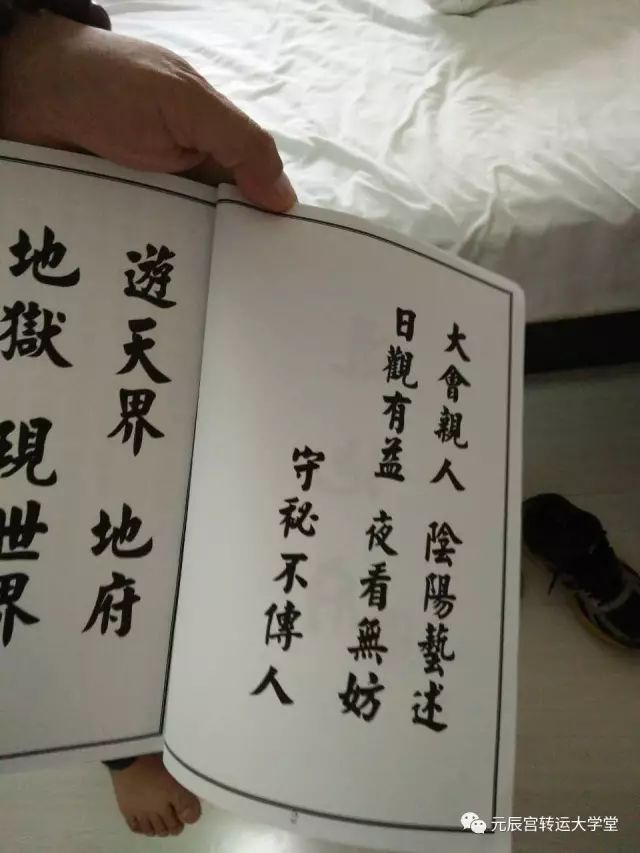 大會親人　陰陽藝述
日觀有益　夜看無妨
守祕不傳人
遊天界　地府
地獄　現世界
元辰宫转运大学堂